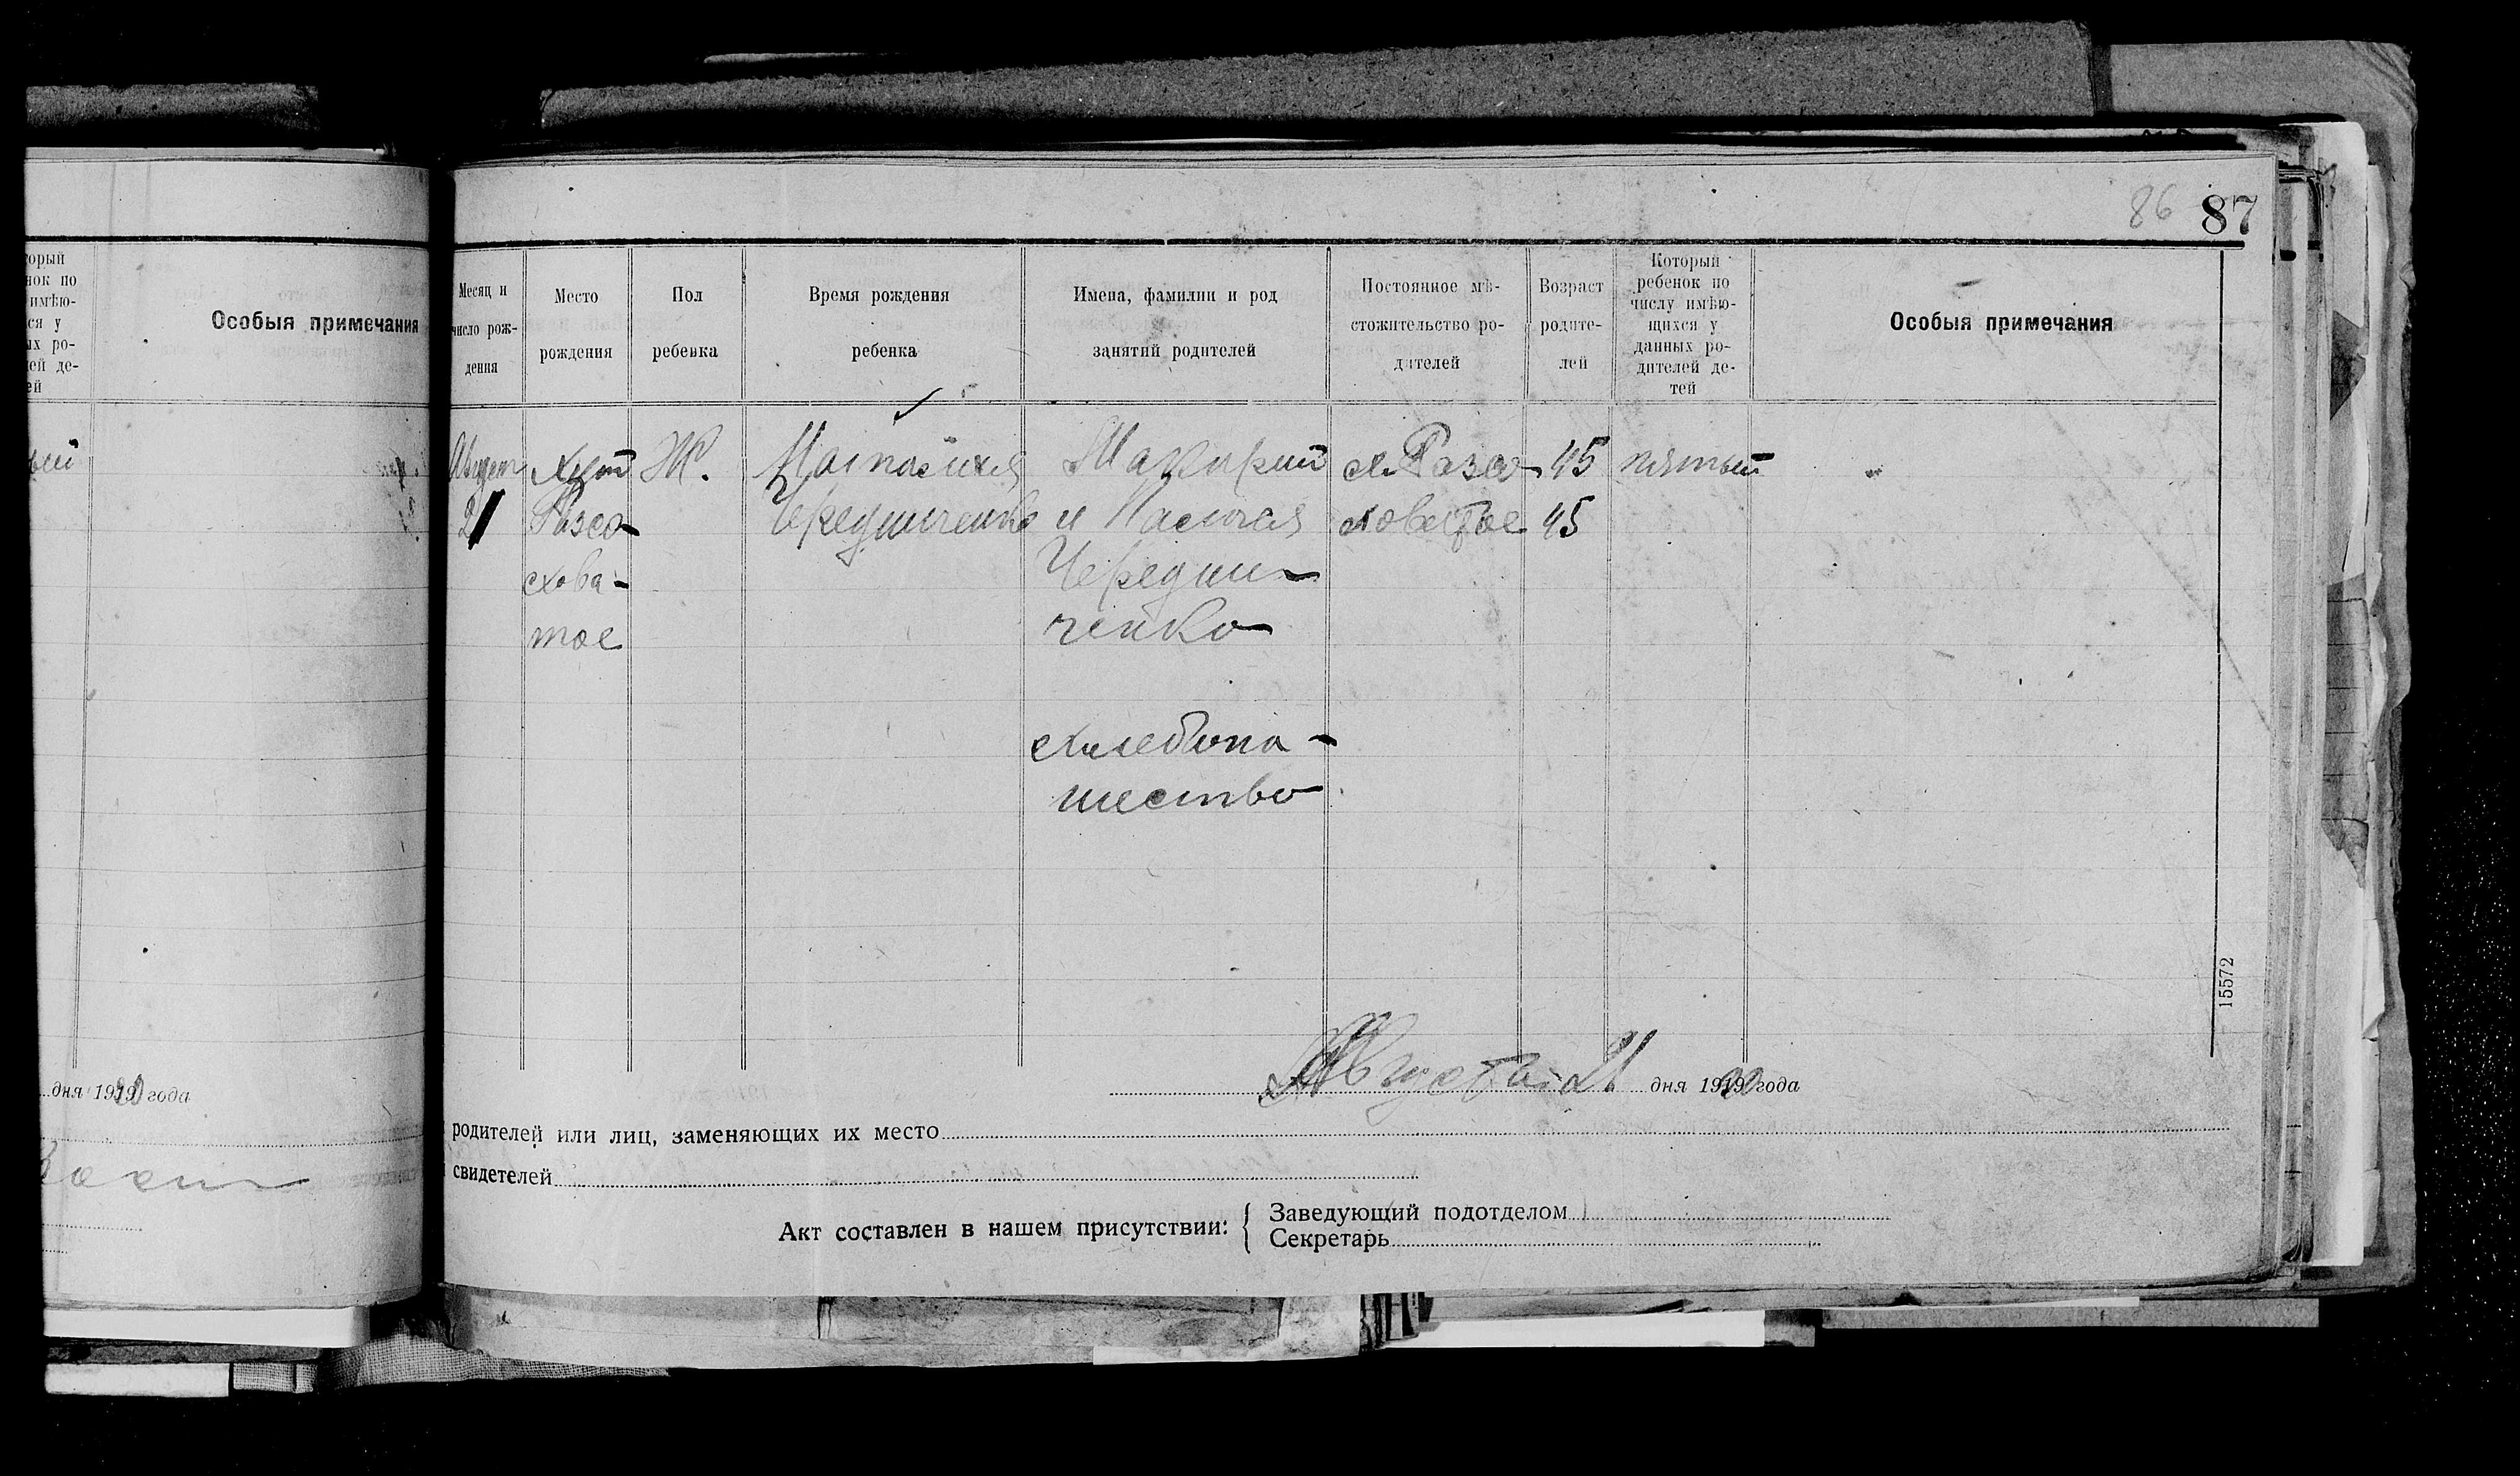 86 87
Особыя примечания
дня 1920 года
Месяц и число рождения
Место рождения
Пол ребенка
Время рождения ребенка
Имена, фамилии и род занятий родителей
Постоянное мѣстожительство родителей
Возраст родителей
Который ребенок по числу имѣющихся у данных родителей детей
Особыя примечания
Август
21
Хут
Разсо-
хова-
тое
Ж.
Чередниченко
Макарий
и
Чередни-
ченко
хлебопа-
шество
х. Разсо-
ховатое
45
45
пятый
15572
Августа 21 дня 1920 года
родителей или лиц, заменяющих их место
свидетелей
Акт составлен в нашем присутствии:
Заведующий подотделом
Секретарь